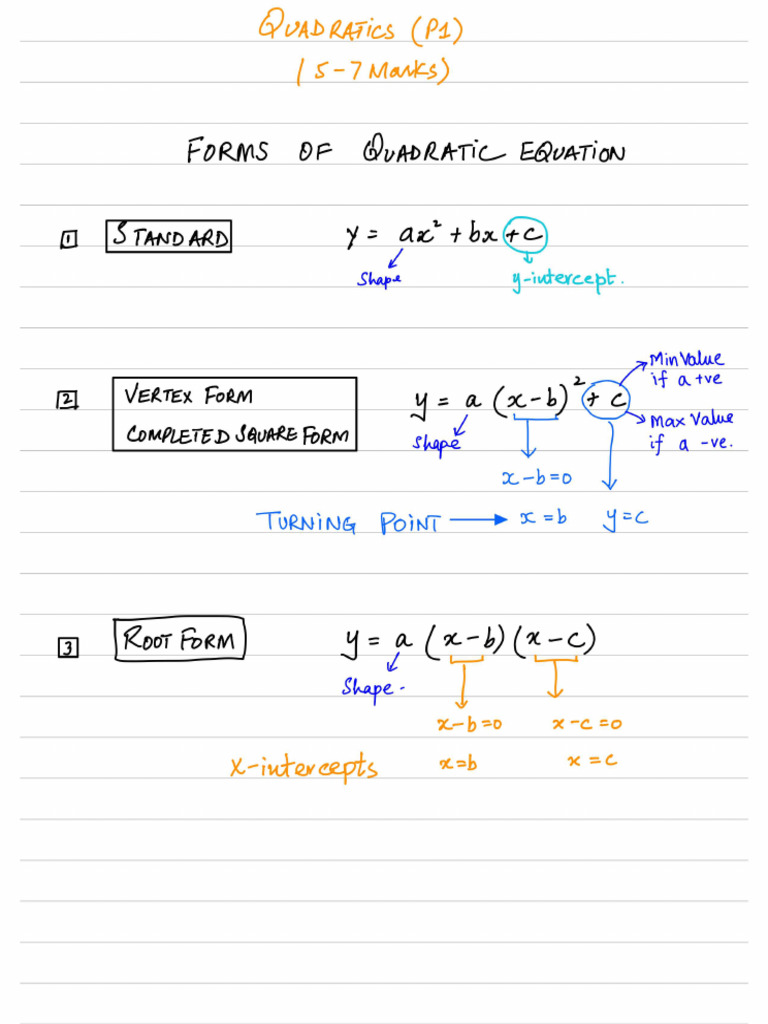 QUADRATICS (P1)
(5-7 Marks)
FORMS OF QUADRATIC EQUATION
1 STANDARD y = ax² + bx + c
Shape y-intercept.
2 VERTEX FORM
COMPLETED SQUARE FORM
y = a (x-b)² + c
Shape
Min Value
if a +ve
Max Value
if a -ve.
x-b=0
TURNING POINT → x=b y=c
3 ROOT FORM y = a (x-b)(x-c)
Shape.
x-b=0 x-c=0
x-intercepts x=b x=c